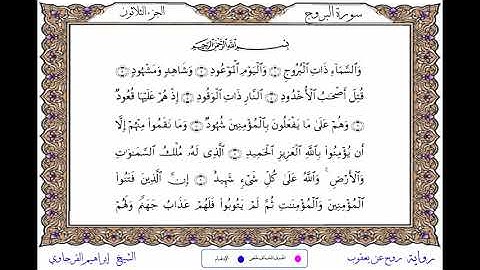 سورة البروج
الجزء الثلاثون
بِسْمِ اللَّهِ الرَّحْمَٰنِ الرَّحِيمِ
وَالسَّمَاءِ ذَاتِ الْبُرُوجِ ۝ وَالْيَوْمِ الْمَوْعُودِ ۝ وَشَاهِدٍ وَمَشْهُودٍ ۝
قُتِلَ أَصْحَٰبُ الْأُخْدُودِ ۝ النَّارِ ذَاتِ الْوَقُودِ ۝ إِذْ هُمْ عَلَيْهَا قُعُودٌ
۝ وَهُمْ عَلَىٰ مَا يَفْعَلُونَ بِالْمُؤْمِنِينَ شُهُودٌ ۝ وَمَا نَقَمُوا مِنْهُمْ إِلَّا
أَن يُؤْمِنُوا بِاللَّهِ الْعَزِيزِ الْحَمِيدِ ۝ الَّذِي لَهُ مُلْكُ السَّمَٰوَٰتِ
وَالْأَرْضِ ۚ وَاللَّهُ عَلَىٰ كُلِّ شَيْءٍ شَهِيدٌ ۝ إِنَّ الَّذِينَ فَتَنُوا
الْمُؤْمِنِينَ وَالْمُؤْمِنَٰتِ ثُمَّ لَمْ يَتُوبُوا فَلَهُمْ عَذَابُ جَهَنَّمَ وَلَهُمْ
رواية روح عن يعقوب
الإدغام
الشيخ إبراهيم الفرجاوي